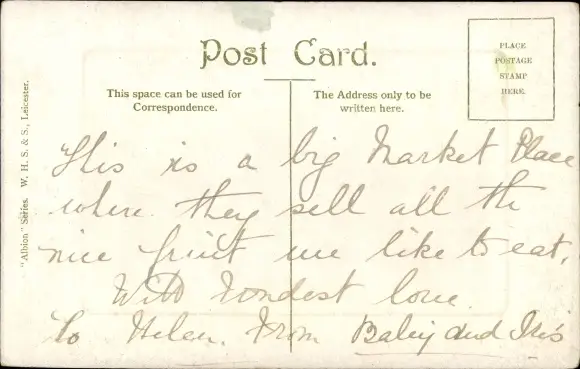 Post Card.
This space can be used for
Correspondence.
The Address only to be
written here.
PLACE
POSTAGE
STAMP
HERE.
"Albion" Series. W. H. S. & S., Leicester.
This is a big Market Place
where they sell all the
nice fruit we like to eat.
With Fondest love.
To Helen. From and Iris